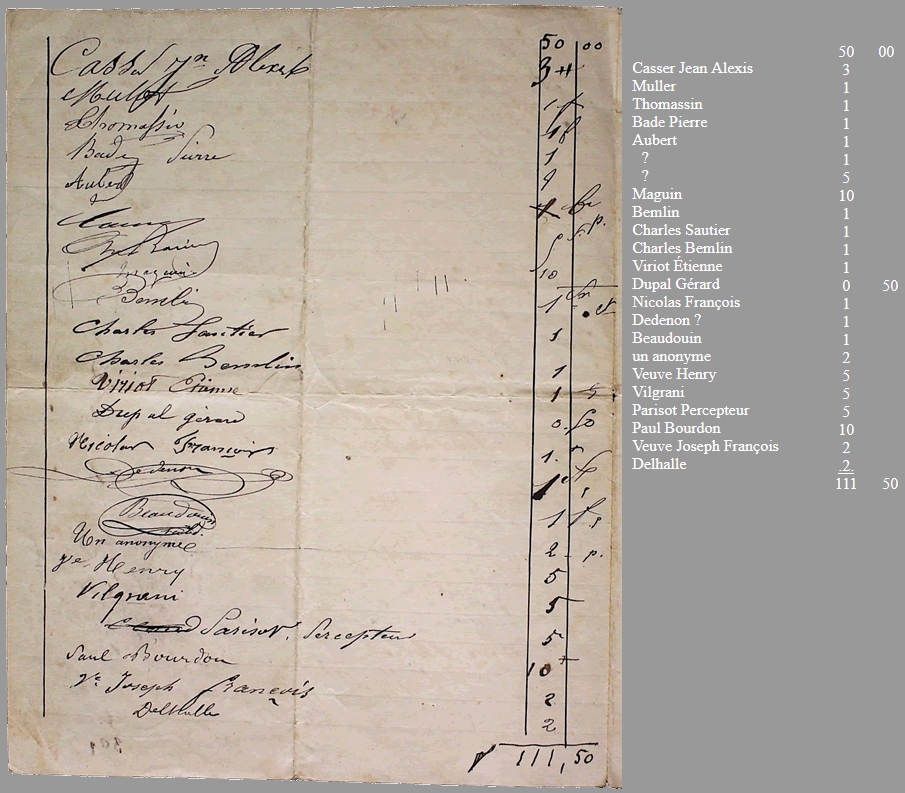 50 00
Alexis 3
1
Thomassin 1
Bade Pierre 1
Aubert
10
Bemlin 1
Charles Sautier 1
Charles Bemlin 1
Viriot Étienne 1
Dupal gérard 0.50
Nicolas François 1.
Dedenon
Beaudouin 1
Un anonyme 2 p.
Ve Henry 5
Vilgrani 5
Parisot, Percepteur 5
Paul Bourdon 10
Ve Joseph François 2
Delhalle 2
111,50
50 00
Casser Jean Alexis 3
Muller 1
Thomassin 1
Bade Pierre 1
Aubert 1
? 1
? 5
Maguin 10
Bemlin 1
Charles Sautier 1
Charles Bemlin 1
Viriot Étienne 1
Dupal Gérard 0 50
Nicolas François 1
Dedenon ? 1
Beaudouin 1
un anonyme 2
Veuve Henry 5
Vilgrani 5
Parisot Percepteur 5
Paul Bourdon 10
Veuve Joseph François 2
Delhalle .2.
111 50